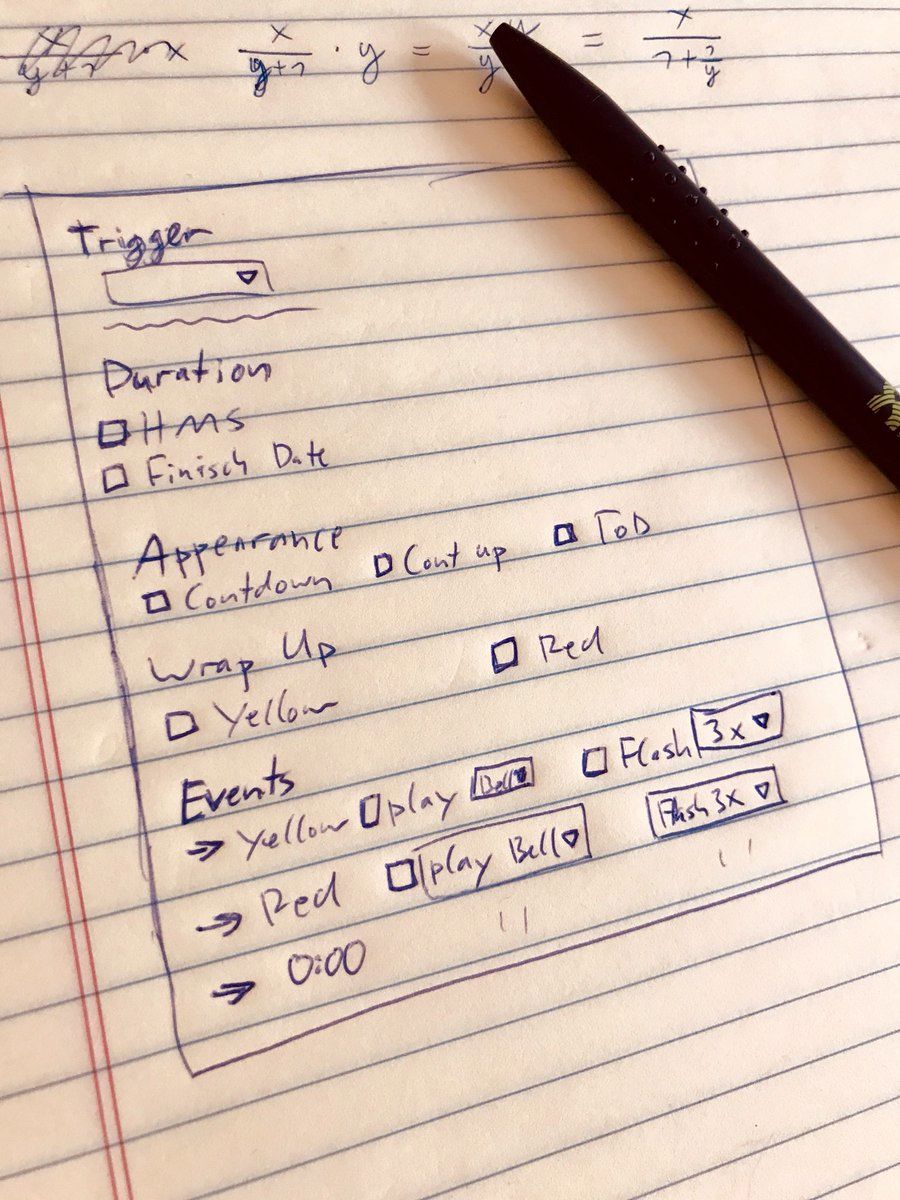 x x/y+7 · y = x/y = x/7+7/y
Trigger
Duration
HMS
Finisch Date
Appearance
Contdown Cont up ToD
Wrap Up
Yellow Red
Events
→ Yellow play Bell Flash 3x
→ Red play Bell Flash 3x
→ 0:00 " "